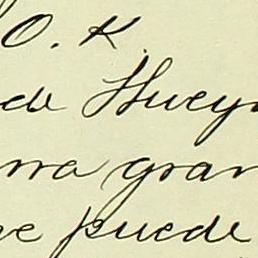 O. K.
de Huey
rra gran
ue puede